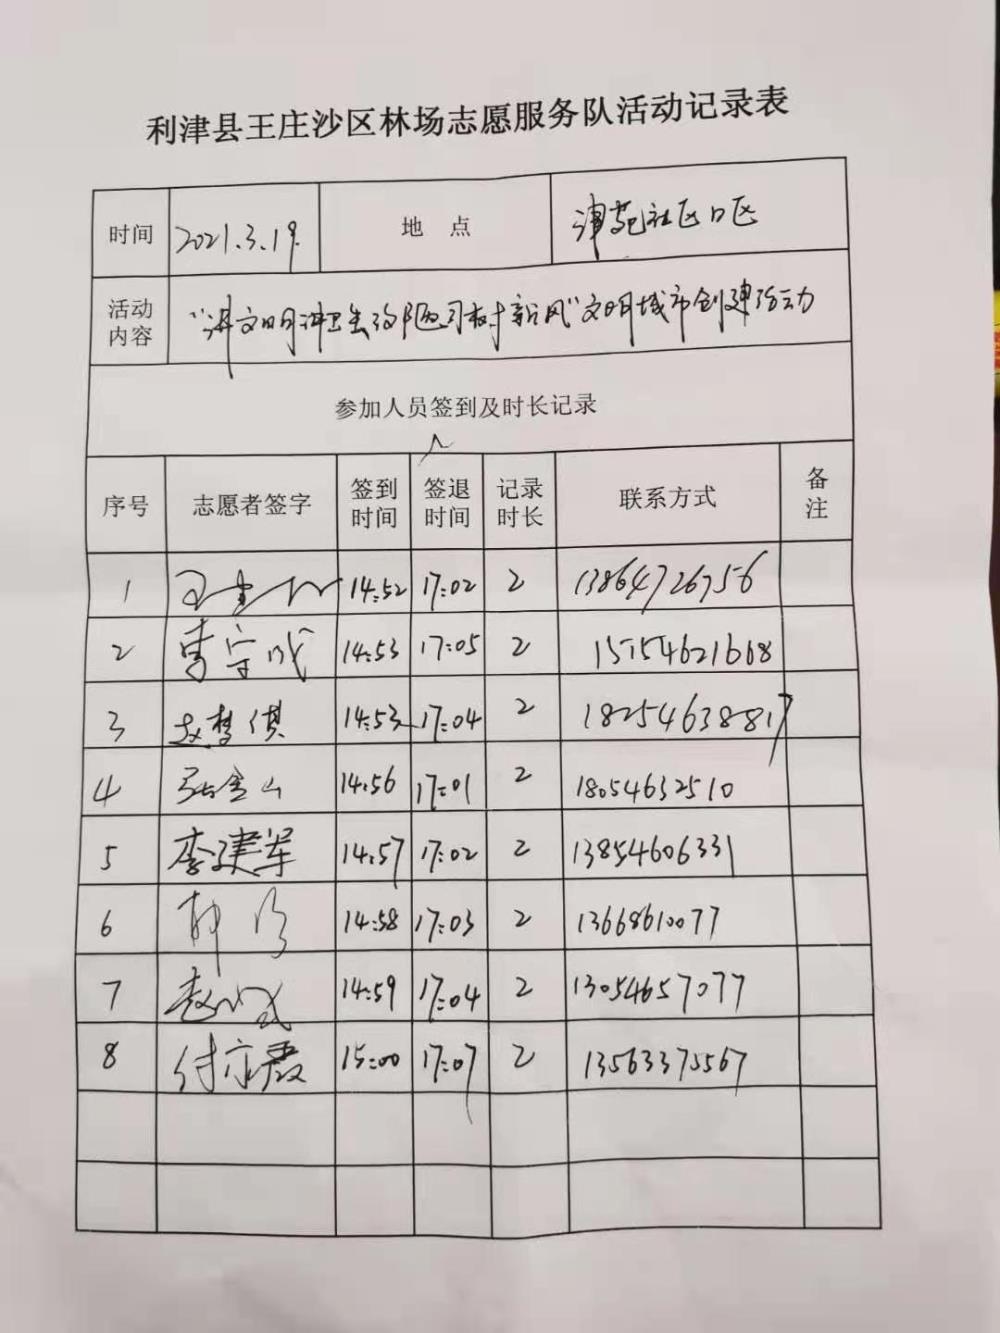 利津县王庄沙区林场志愿服务队活动记录表
时间 2021.3.19. 地 点 津苑社区口区
活动内容 “讲文明讲卫生改陋习树新风”文明城市创建活动
参加人员签到及时长记录
序号 志愿者签字 签到时间 签退时间 记录时长 联系方式 备注
1 14:52 17:02 2 13864726756
2 李守成 14:53 17:05 2 15154621668
3 赵梦琪 14:53 17:04 2 18254638817
4 张金山 14:56 17:01 2 18054632510
5 李建军 14:57 17:02 2 13854606331
6 14:58 17:03 2 13668610077
7 14:59 17:04 2 13054657077
8 15:00 17:07 2 13563375567